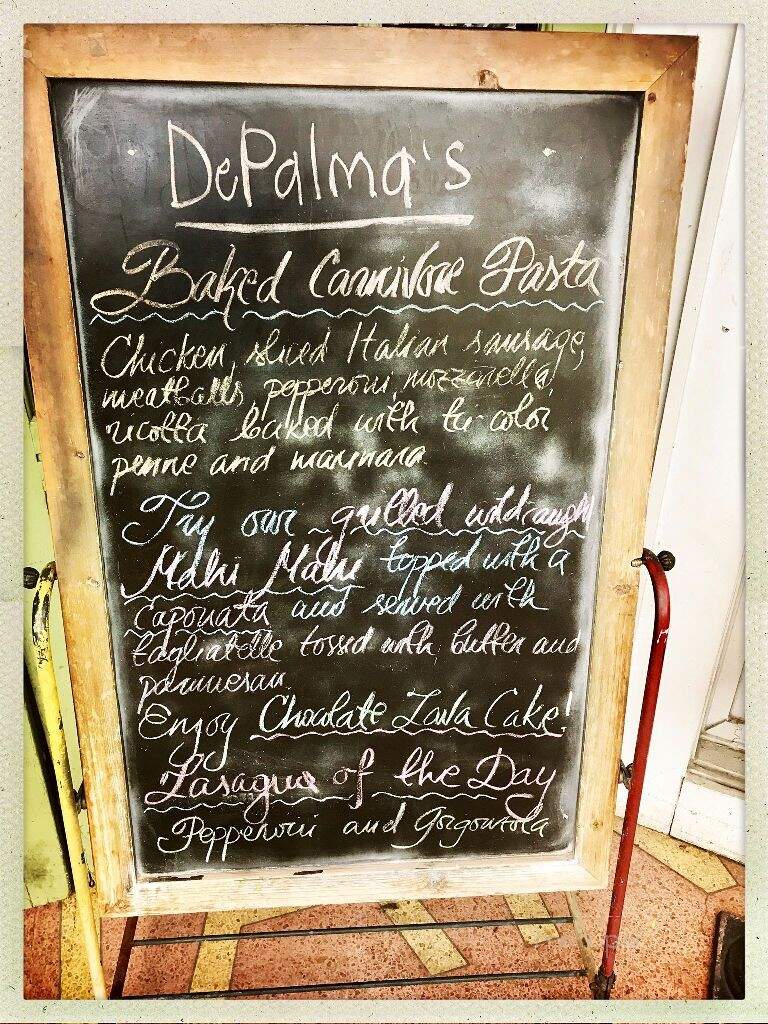 DePalma's
Baked Carnivore Pasta
Chicken, sliced Italian sausage,
meatballs, pepperoni, mozzarella,
ricotta baked with tri-color
penne and marinara
Try our grilled wild caught
Mahi Mahi topped with a
Caponata and served with
tagliatelle tossed with butter and
parmesan.
Enjoy Chocolate Lava Cake!
Lasagna of the Day
Pepperoni and Gorgonzola